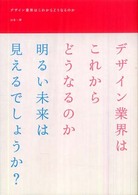 デザイン業界はこれからどうなるのか
デザイン業界は
これから
どうなるのか
明るい未来は
見えるでしょうか？